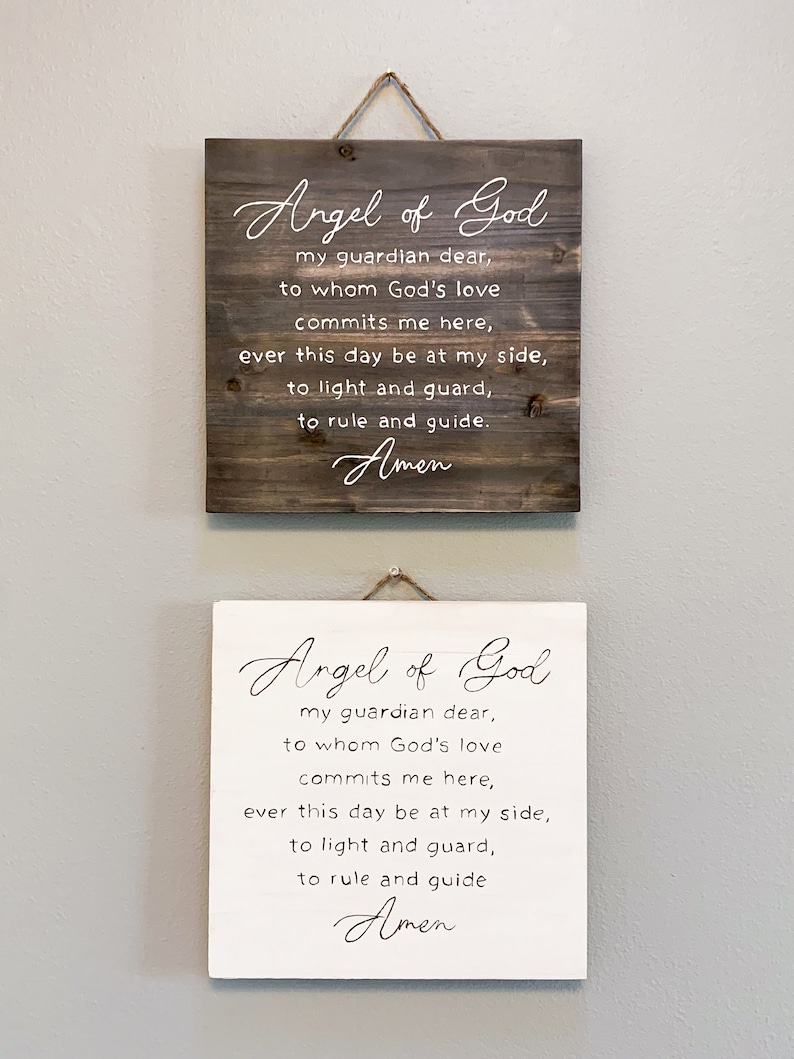 Angel of God
my guardian dear,
to whom God's love
commits me here,
ever this day be at my side,
to light and guard,
to rule and guide.
Amen
Angel of God
my guardian dear,
to whom God's love
commits me here,
ever this day be at my side,
to light and guard,
to rule and guide
Amen